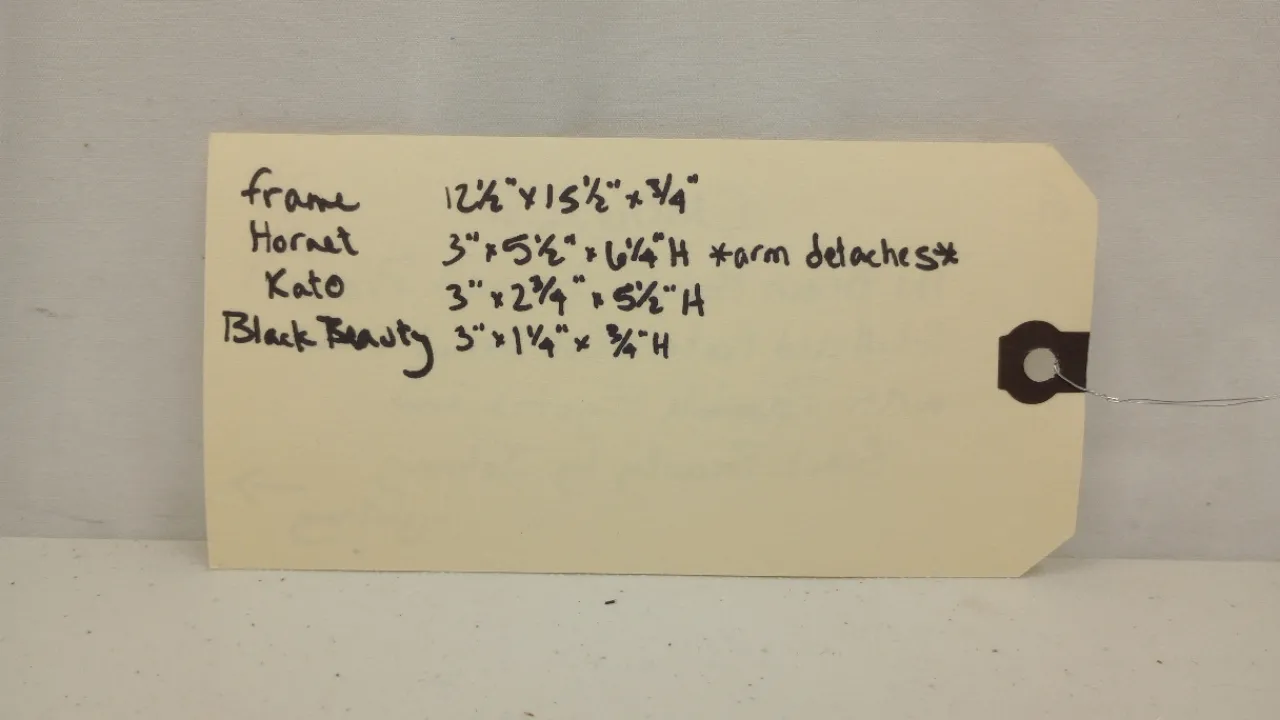 frame 12½" x 15½" x ¾"
Hornet 3" x 5½" x 6¼" H *arm detaches*
Kato 3" x 2¾" x 5½" H
Black Beauty 3" x 1¼" x ¾" H